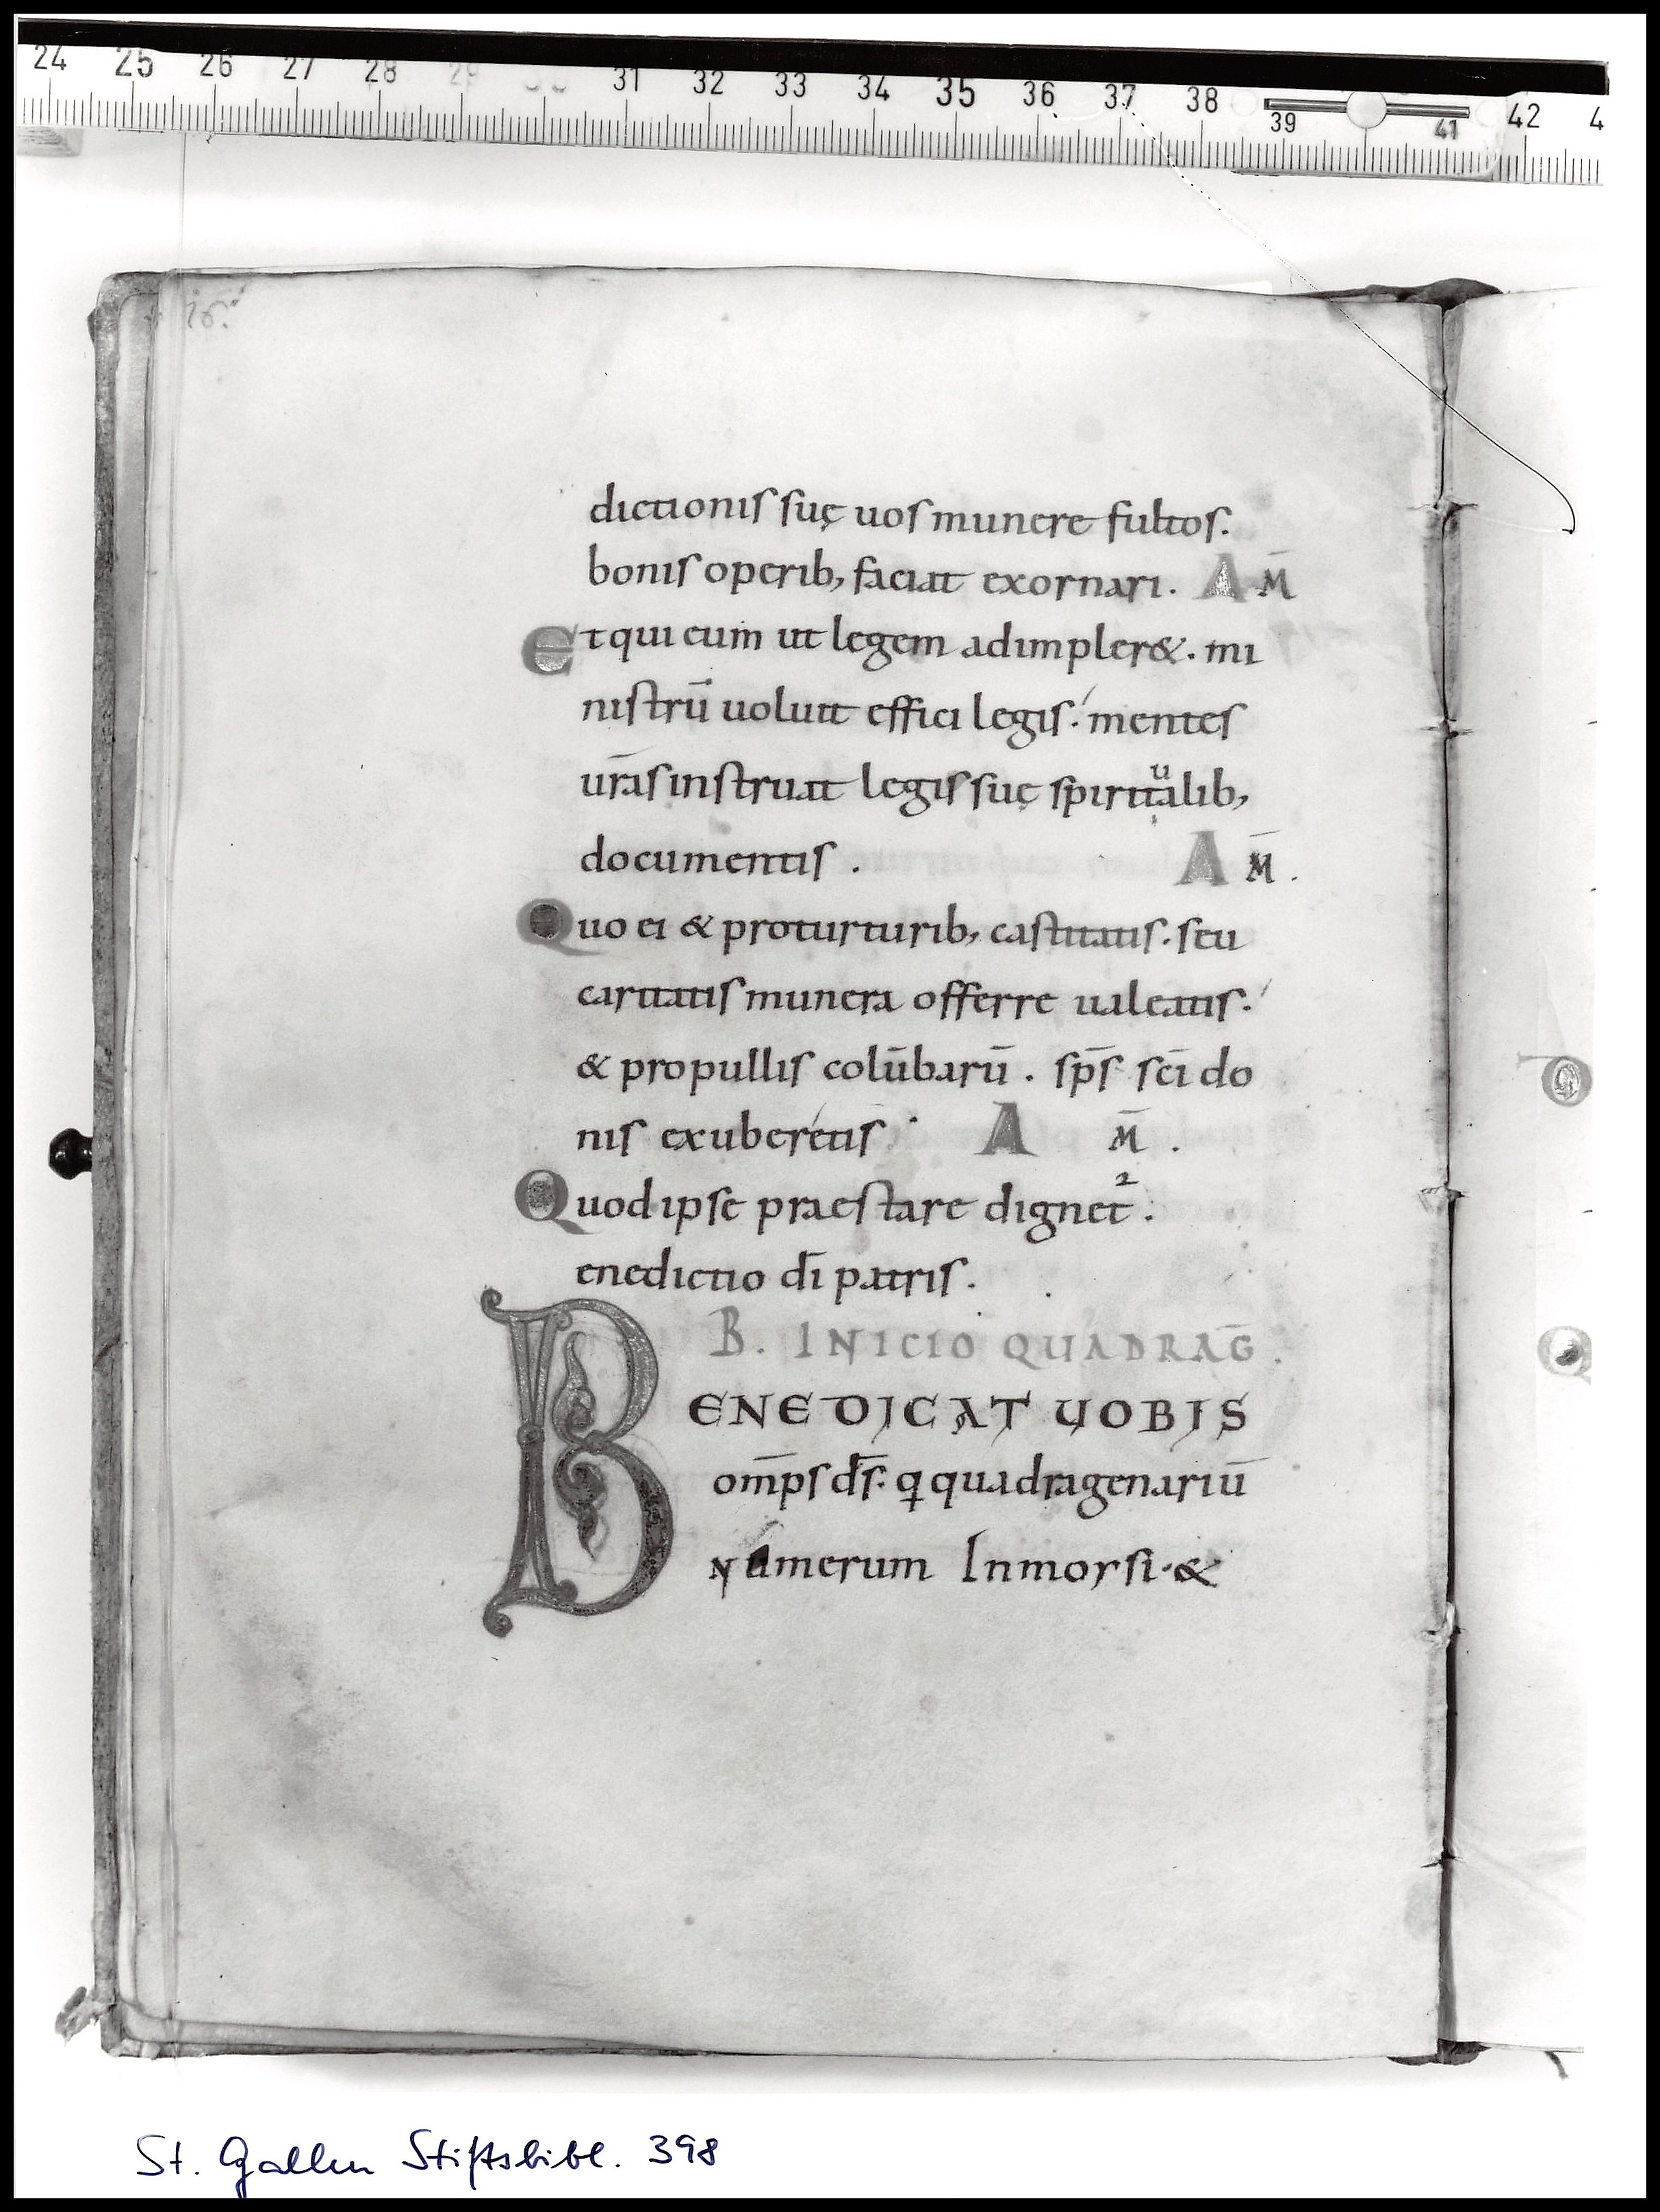 24 25 26 27 28 29 31 32 33 34 35 36 37 38 39 41 42 4
dictionis suę uos munere fultos.
bonis operib, faciat exornari. A M̄
Et qui eum ut legem adimpler&. mi
nistrū uoluit effici legis. mentes
ur̄as instruat legis suę spiritualib,
documentis . A M̄ .
Quo ei & pro turturib, castitatis. seu
caritatis munera offerre ualeatis.
& pro pullis colūbarū . sp̄s sc̄i do
nis exuberetis A M̄ .
Quod ipse praestare dignet².
enedictio dī patris.
B. INICIO QUADRAḠ.
BENEDICAT UOBIS
om̄ps d̄s. q quadragenariū
Numerum In morsi. &
St. Gallen Stiftsbibl. 398